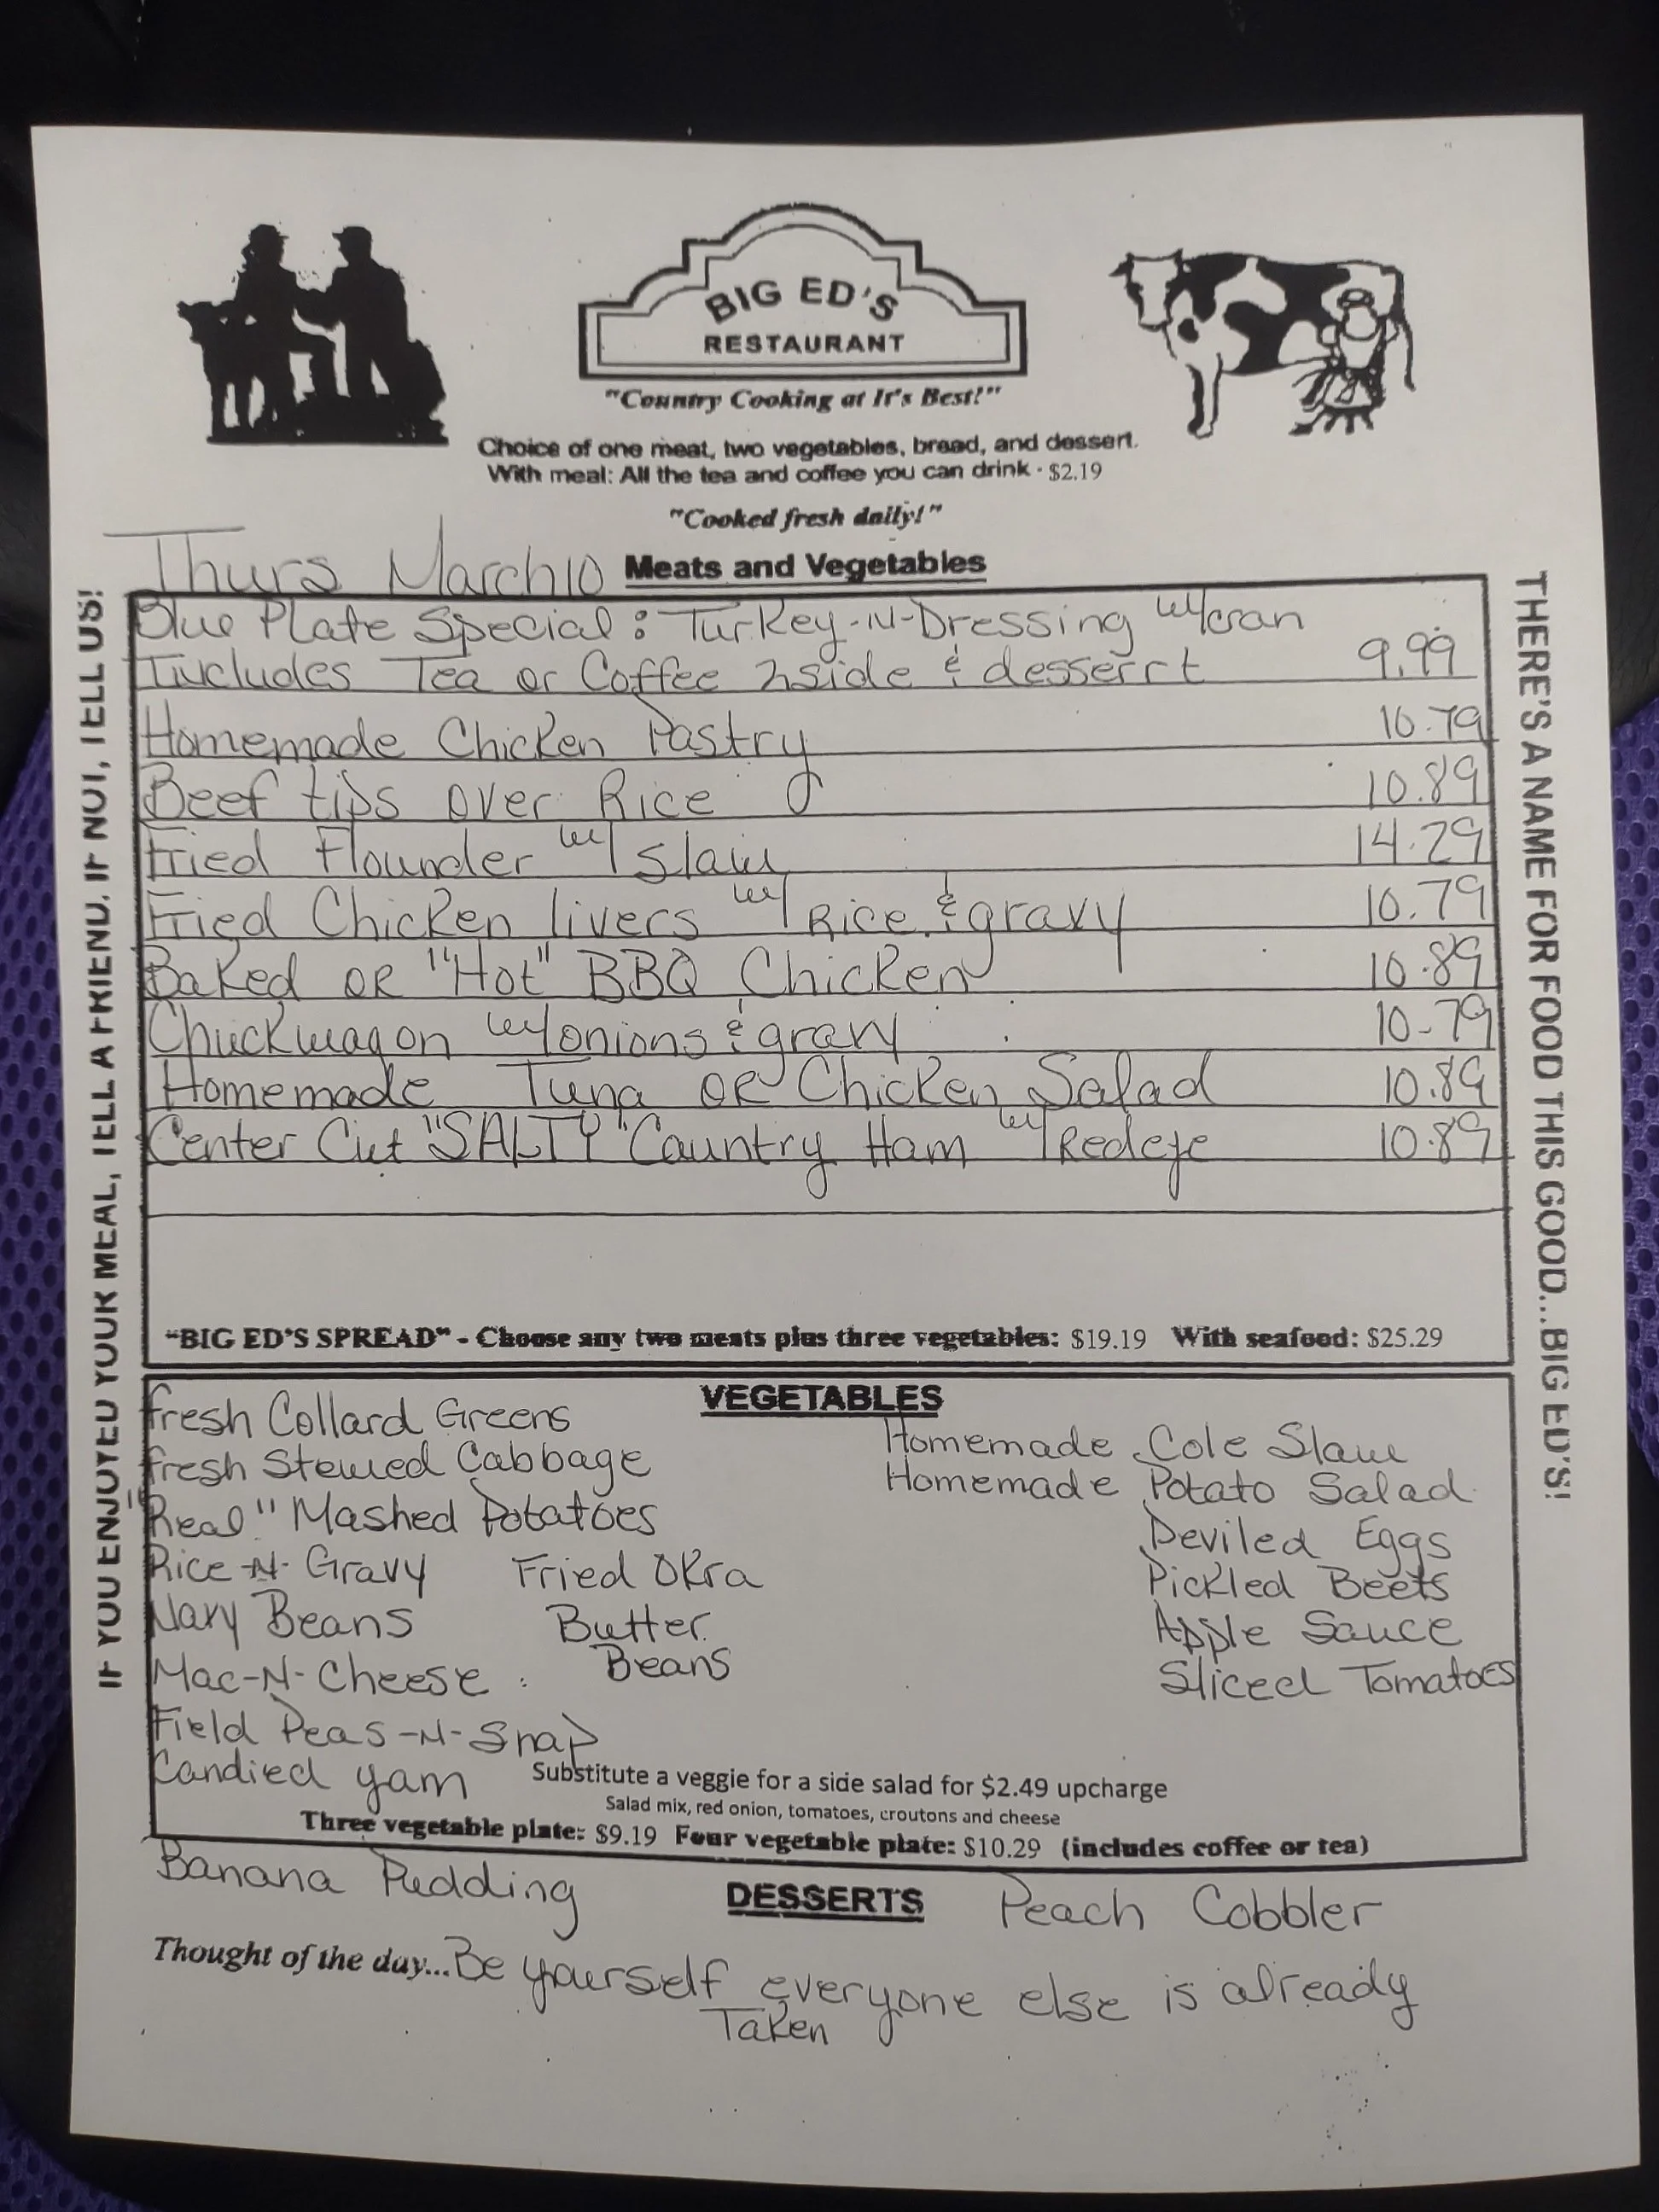 BIG ED'S
RESTAURANT
"Country Cooking at It's Best!"
Choice of one meat, two vegetables, bread, and dessert.
With meal: All the tea and coffee you can drink - $2.19
"Cooked fresh daily!"
Thurs March 10 Meats and Vegetables
Blue Plate Special: Turkey-N-Dressing w/cran
Includes Tea or Coffee 2side & desserrt 9.99
Homemade Chicken Pastry 10.79
Beef tips over Rice 10.89
Fried Flounder w/ slaw 14.29
Fried Chicken livers w/ Rice & gravy 10.79
Baked OR "Hot" BBQ Chicken 10.89
Chuckwagon w/onions & gravy 10-79
Homemade Tuna OR Chicken Salad 10.89
Center Cut "SALTY" Country Ham w/ Redeye 10.89
"BIG ED'S SPREAD" - Choose any two meats plus three vegetables: $19.19 With seafood: $25.29
VEGETABLES
Fresh Collard Greens
Fresh Stewed Cabbage
"Real" Mashed Potatoes
Rice-N-Gravy
Navy Beans
Mac-N-Cheese
Field Peas-N-Snap
Candied yam
Fried Okra
Butter
Beans
Homemade Cole Slaw
Homemade Potato Salad
Deviled Eggs
Pickled Beets
Apple Sauce
Sliced Tomatoes
Substitute a veggie for a side salad for $2.49 upcharge
Salad mix, red onion, tomatoes, croutons and cheese
Three vegetable plate: $9.19 Four vegetable plate: $10.29 (includes coffee or tea)
Banana Pudding DESSERTS Peach Cobbler
Thought of the day... Be yourself everyone else is already
Taken
IF YOU ENJOYED YOUR MEAL, TELL A FRIEND. IF NOT, TELL US!
THERE'S A NAME FOR FOOD THIS GOOD...BIG ED'S!